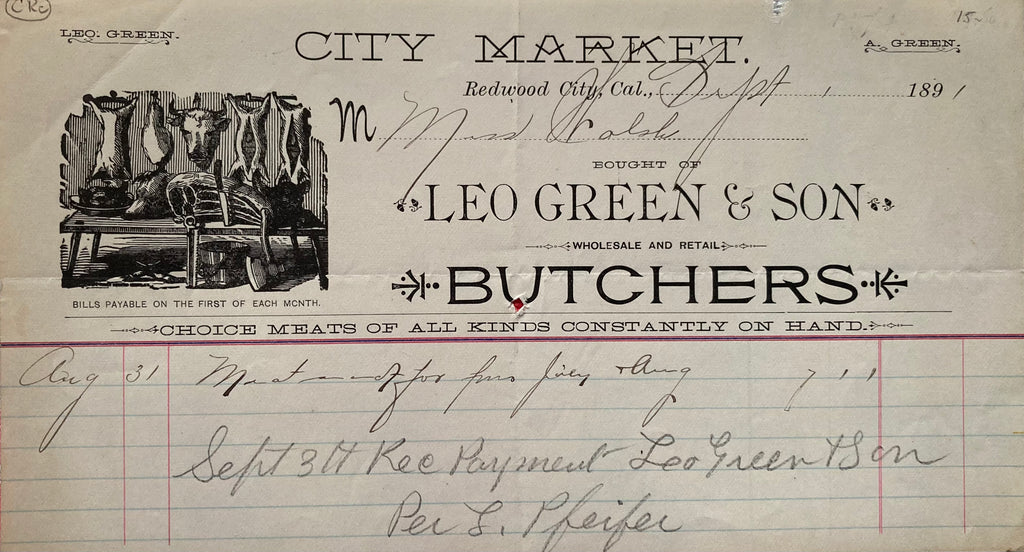 CRc
15
LEO. GREEN.
CITY MARKET.
A. GREEN.
Redwood City, Cal., Sept 1 1891
M Miss Walsh
BOUGHT OF
LEO GREEN & SON
WHOLESALE AND RETAIL
BUTCHERS
BILLS PAYABLE ON THE FIRST OF EACH MONTH.
CHOICE MEATS OF ALL KINDS CONSTANTLY ON HAND.
Aug 31 Meat & Aug 7 11
Sept 3 Rec Payment Leo Green & Son
Per L. Pfeifer